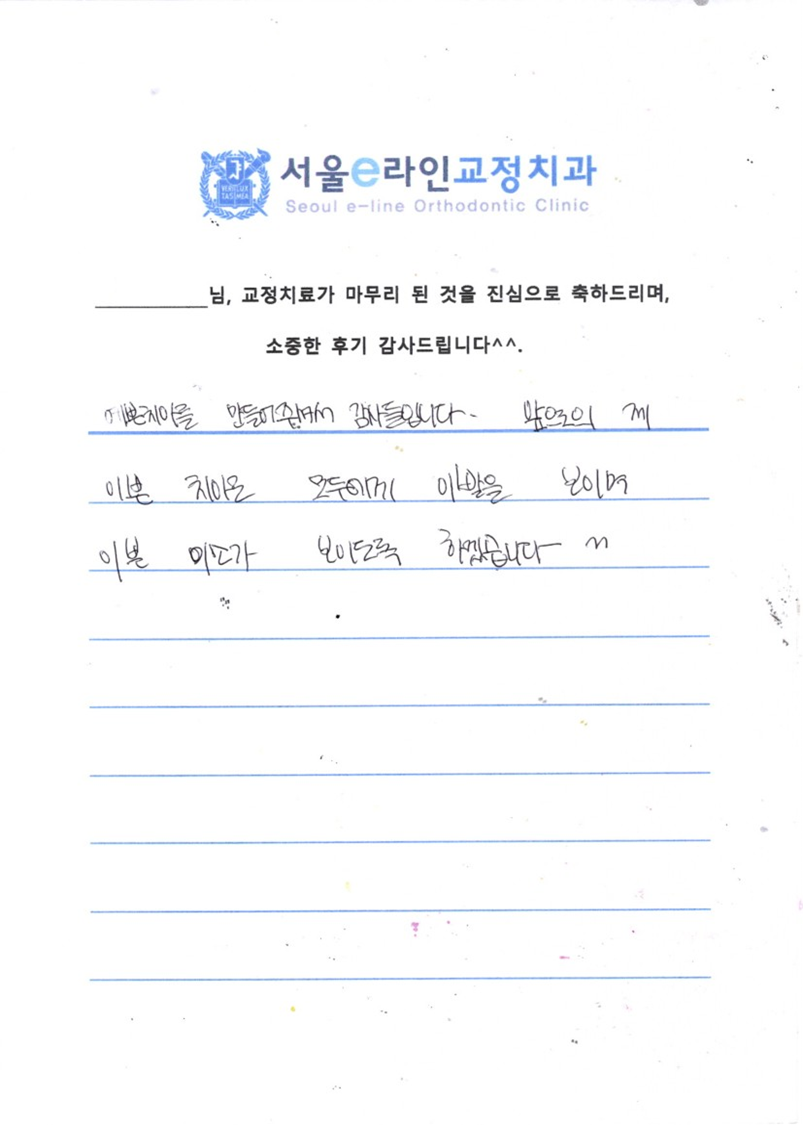 서울e라인교정치과
Seoul e-line Orthodontic Clinic
님, 교정치료가 마무리 된 것을 진심으로 축하드리며,
소중한 후기 감사드립니다^^.
만들어주셔서 감사드립니다. 앞으로의 제
이쁜 치아로 모두에게 이빨을 보이며
이쁜 미소가 보이도록 하겠습니다 ^^